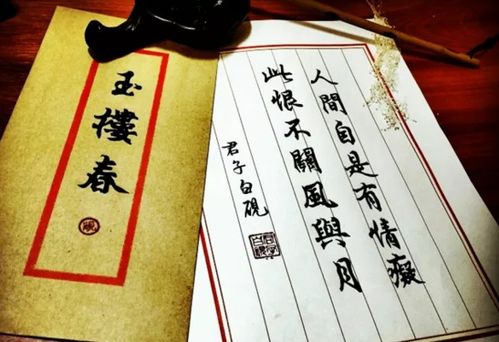 人間自是有情癡
此恨不關風與月
君子白硯
玉樓春
硯